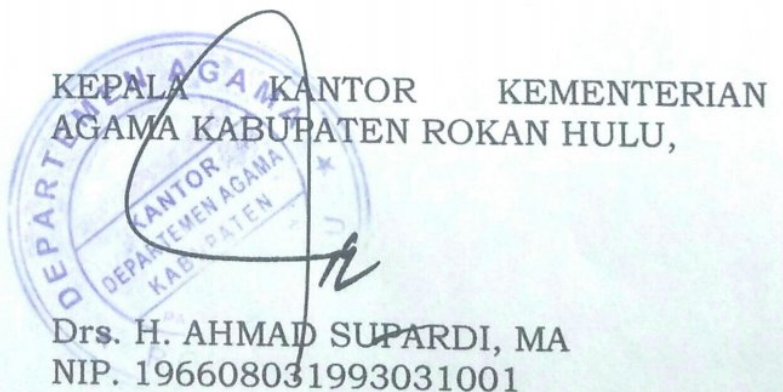 KEPALA KANTOR KEMENTERIAN
AGAMA KABUPATEN ROKAN HULU,
DEPARTEMEN AGAMA
KANTOR
DEPARTEMEN AGAMA
KABUPATEN
Drs. H. AHMAD SUPARDI, MA
NIP. 196608031993031001